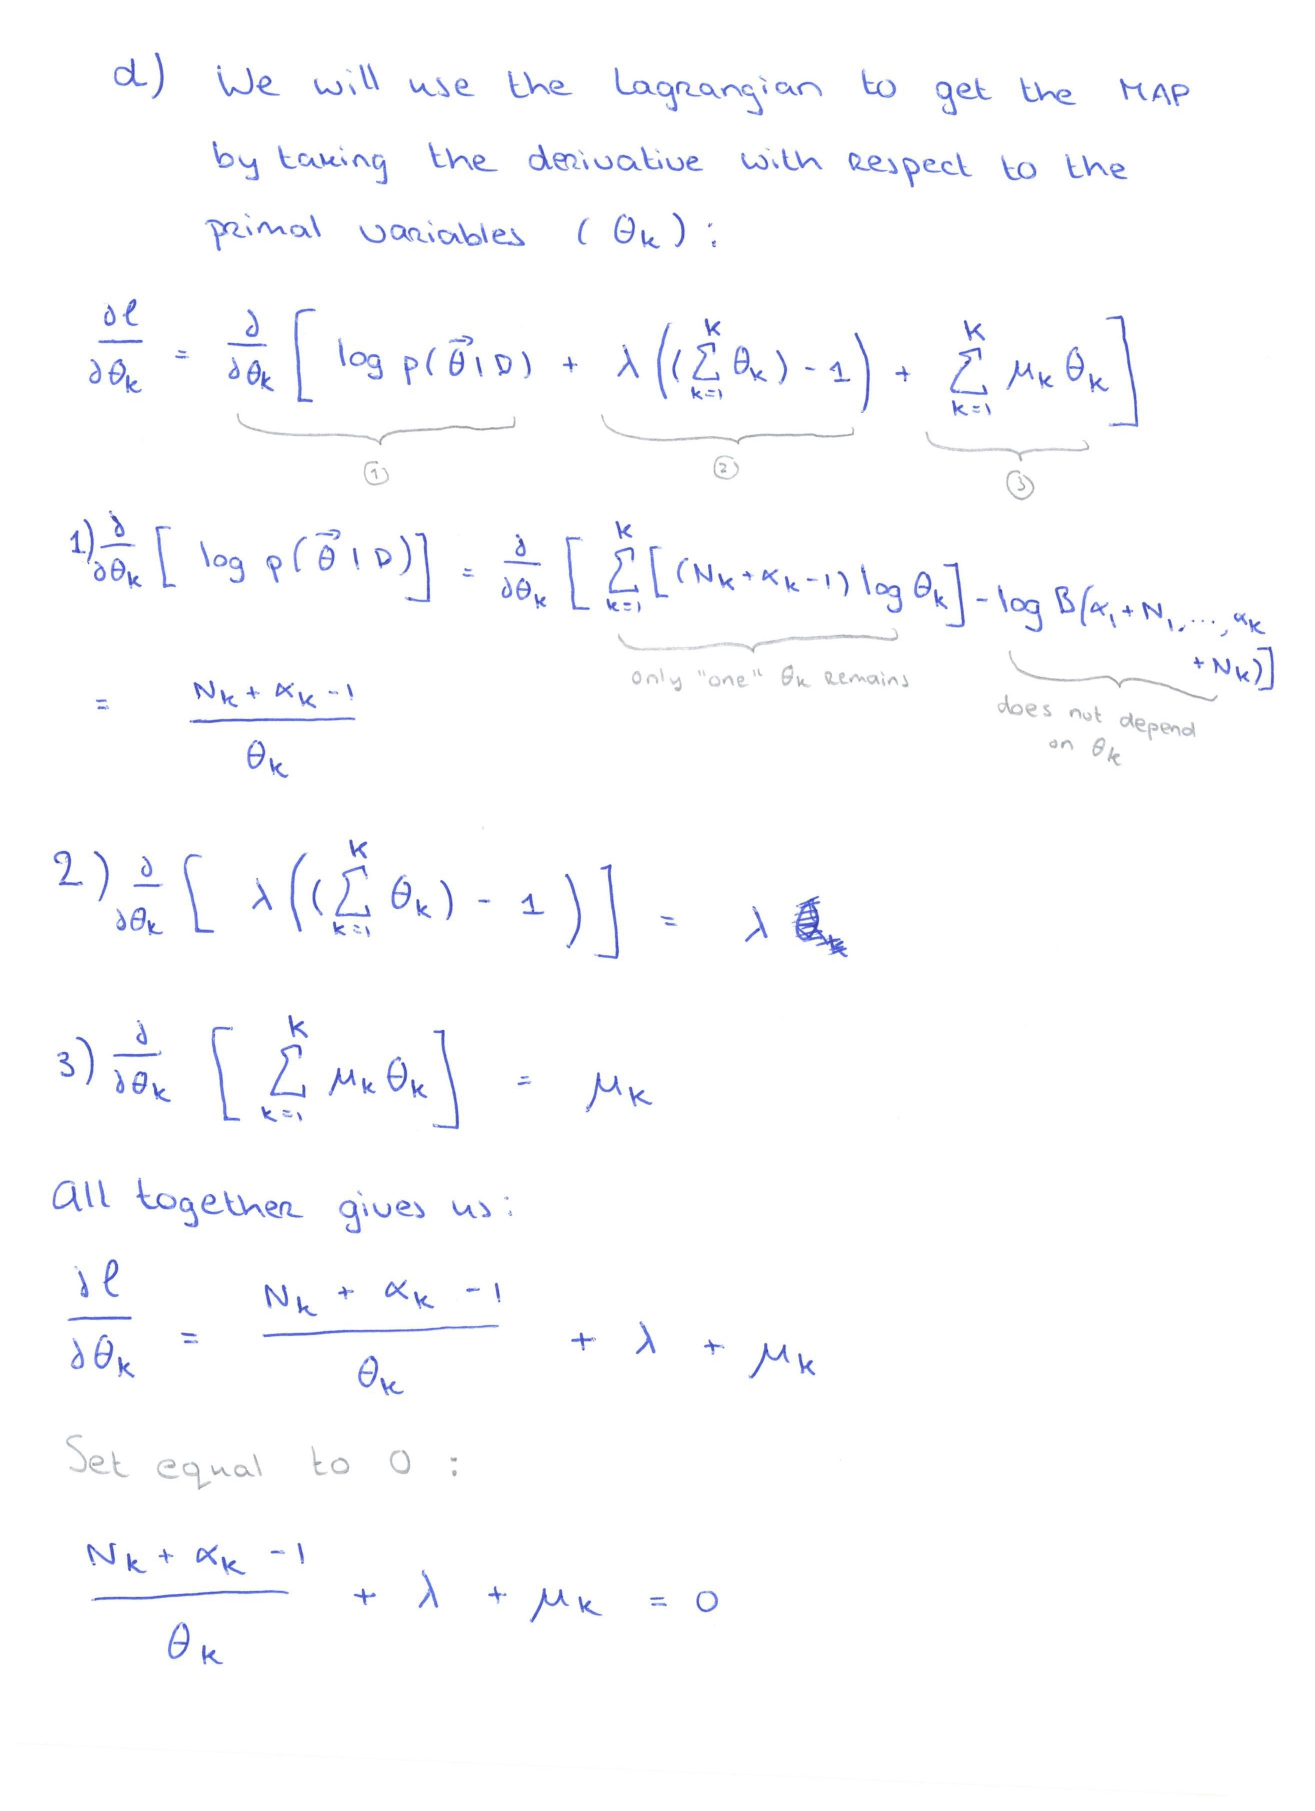 d) We will use the Lagrangian to get the MAP
by taking the derivative with respect to the
primal variables (θ_k):
∂ℓ/∂θ_k = ∂/∂θ_k [ log p(θ⃗|D) + λ((Σ_{k=1}^{K} θ_k) - 1) + Σ_{k=1}^{K} μ_k θ_k ]
① ② ③
1) ∂/∂θ_k [ log p(θ⃗|D) ] = ∂/∂θ_k [ Σ_{k=1}^{K} [(N_k + α_k - 1) log θ_k] - log B(α_1 + N_1, ..., α_k
+ N_k)]
only "one" θ_k remains
does not depend
on θ_k
= (N_k + α_k - 1)/θ_k
2) ∂/∂θ_k [ λ((Σ_{k=1}^{K} θ_k) - 1) ] = λ
3) ∂/∂θ_k [ Σ_{k=1}^{K} μ_k θ_k ] = μ_k
All together gives us:
∂ℓ/∂θ_k = (N_k + α_k - 1)/θ_k + λ + μ_k
Set equal to 0 :
(N_k + α_k - 1)/θ_k + λ + μ_k = 0